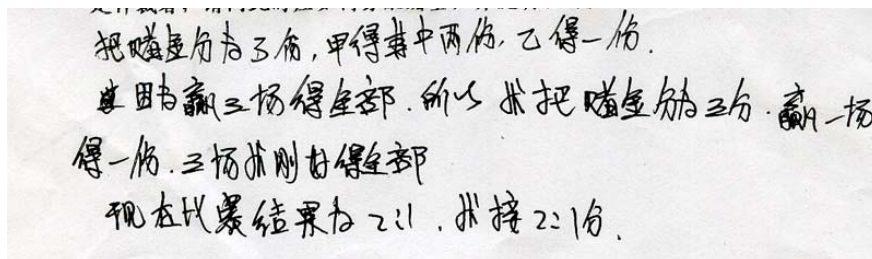 把赌金分为3份,甲得其中两份,乙得一份.
因为赢三场得全部.所以就把赌金分为三分.赢一场
得一份.三场就刚好得全部
现在比赛结果为2:1,就按2:1分.